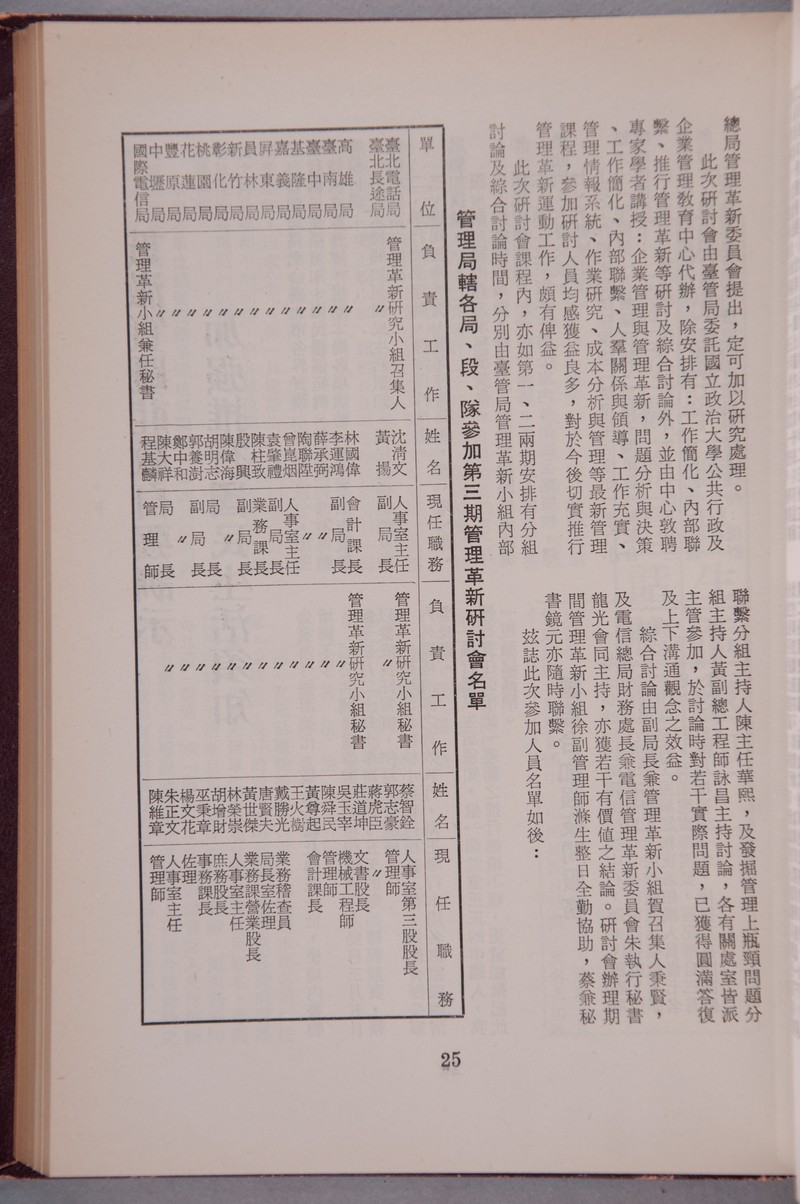 總局管理革新委員會提出，定可加以研究處理。
此次研討會由臺管局委託國立政治大學公共行政及
企業管理教育中心代辦，除安排有：工作簡化、內部聯
繫、推行管理革新等研討及綜合討論外，並由中心敦聘
專家學者講授：企業管理與管理革新，問題分析與決策
、工作簡化、內部聯繫、人羣關係與領導、工作充實、
管理情報系統、作業研究、成本分析與管理等最新管理
課程，參加研討人員均感獲益良多，對於今後切實推行
管理革新運動工作，頗有俾益。
此次研討會課程內，亦如第一、二兩期安排有分組
討論及綜合討論時間，分別由臺管局管理革新小組內部
聯繫分組主持人陳主任華熙，及發掘管理上瓶頸問題分
組主持人黃副總工程師詠昌主持討論，各有關處室皆派
主管參加，於討論時對若干實際問題，已獲得圓滿答復
及上下溝通觀念之效益。
綜合討論由副局長兼管理革新小組賀召集人秉賢，
及電信總局財務處長兼電信管理革新委員會朱執行秘書
龍光會同主持，亦獲若干有價值之結論。研討會辦理期
間管理革新小組徐副管理師滌生整日全勤協助，蔡兼秘
書鏡元亦隨時聯繫。
茲誌此次參加人員名單如後：
管理局轄各局、段、隊參加第三期管理革新研討會名單
單位
臺北電話局
臺北長途局
高雄局
臺南局
臺中局
基隆局
嘉義局
屏東局
員林局
新竹局
彰化局
桃園局
花蓮局
豐原局
中壢局
國際電信局
負責工作
管理革新研究小組召集人
〃
〃
〃
〃
〃
〃
〃
〃
〃
〃
〃
〃
〃
〃
管理革新小組兼任秘書
姓名
沈清文
黃揚
林國偉
李運鴻
薛承弼
陶聯陞
曾崑烟
袁肇禮
陳柱致
殷興
陳偉海
胡明志
郭養澍
鄭中和
陳大祥
程基麟
現任職務
人事室主任
副局長
會計課長
副局長
〃
〃
人事室主任
副局長
業務課長
副局長
〃
局長
副局長
〃
局長
管理師
負責工作
管理革新研究小組秘書
〃
管理革新研究小組秘書
〃
〃
〃
〃
〃
〃
〃
〃
〃
〃
〃
〃
姓名
蔡智銓
郭志豪
蔣虎臣
莊道坤
吳玉宰
陳舜民
黃尊起
王火樹
戴勝光
唐賢夫
黃世傑
林榮崇
胡增財
巫秉章
楊文花
朱正文
陳維章
現任職務
人事室第三股股長
管理師
〃
文書股長
機械工程師
管理師
會計課長
業務稽查員
局長室佐理
業務課營業股長
人事室主任
庶務股長
事務課長
佐理
人事室主任
管理師
25